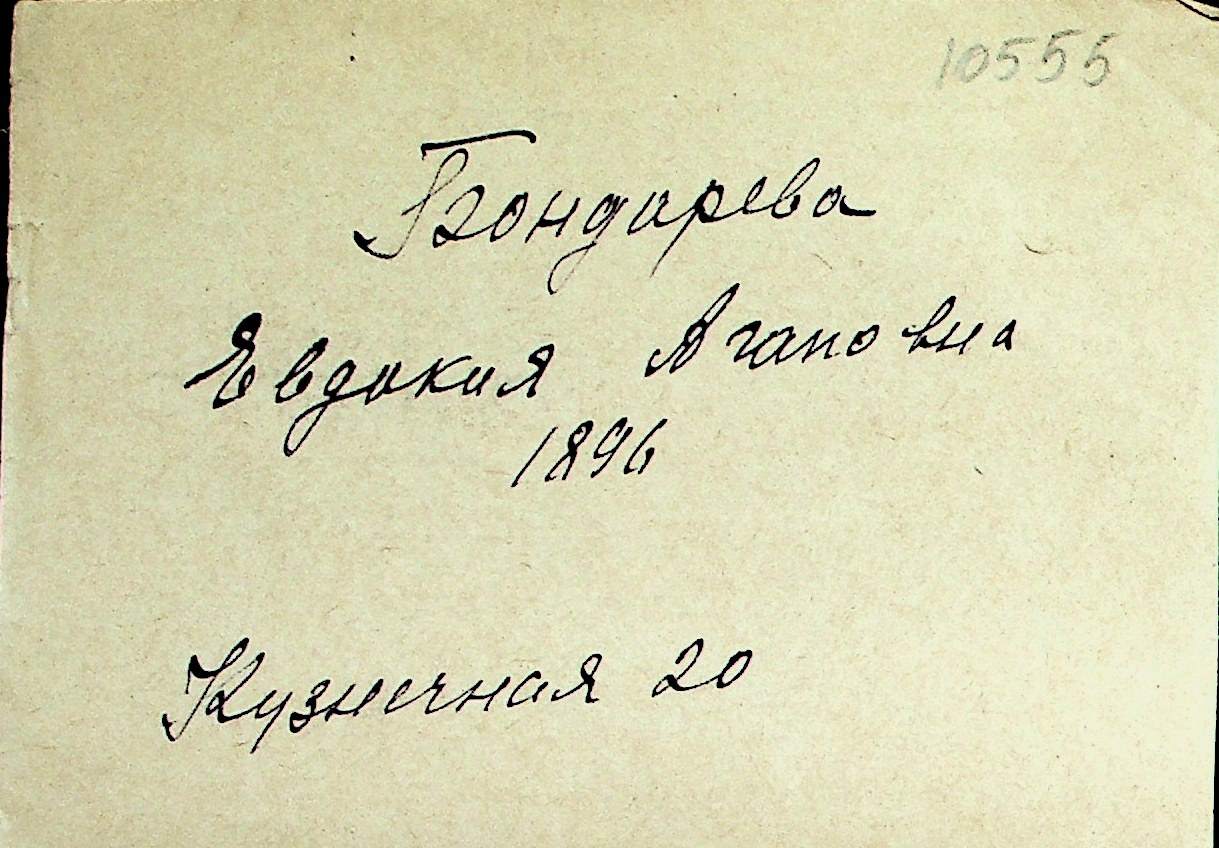 10555
Бондарева
Евдокия Агаповна
1896
Кузнечная 20